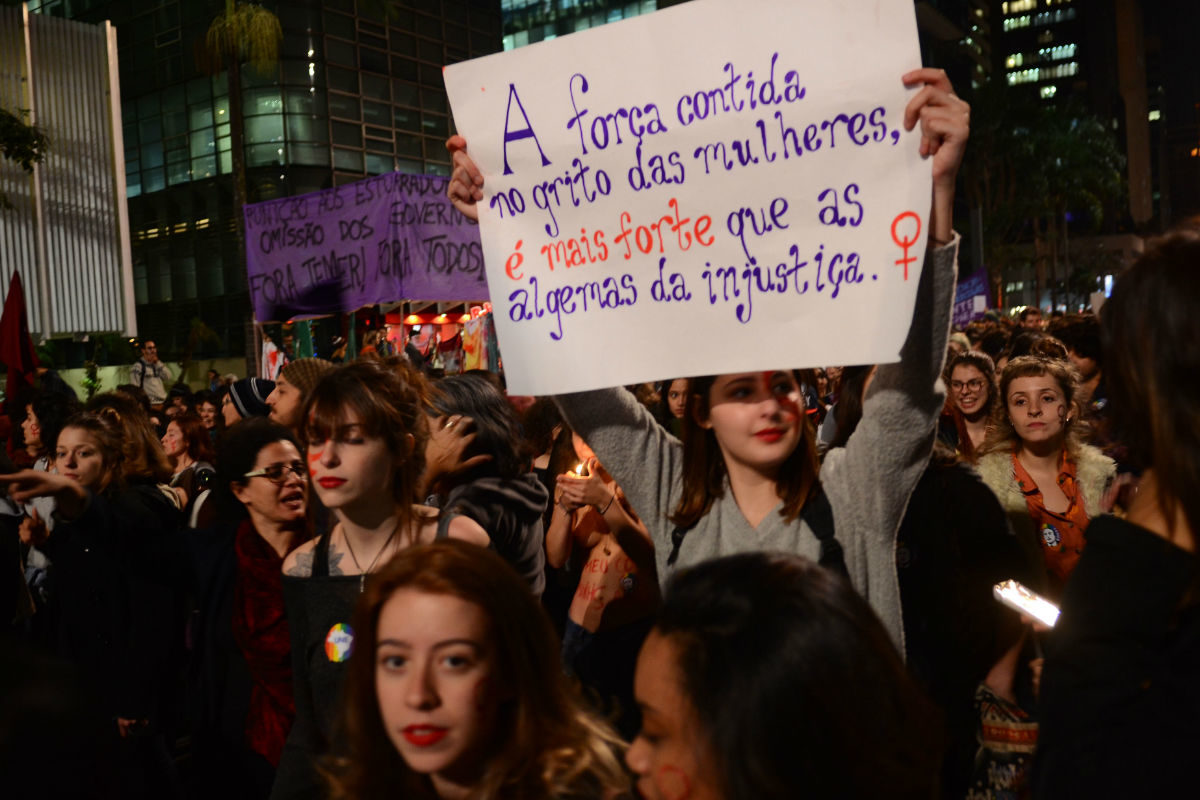 A força contida
no grito das mulheres,
é mais forte que as
algemas da injustiça. ♀
PUNIÇÃO AOS ESTUPRADO
OMISSÃO DOS GOVERNO
FORA TEMER! FORA TODOS
UNE